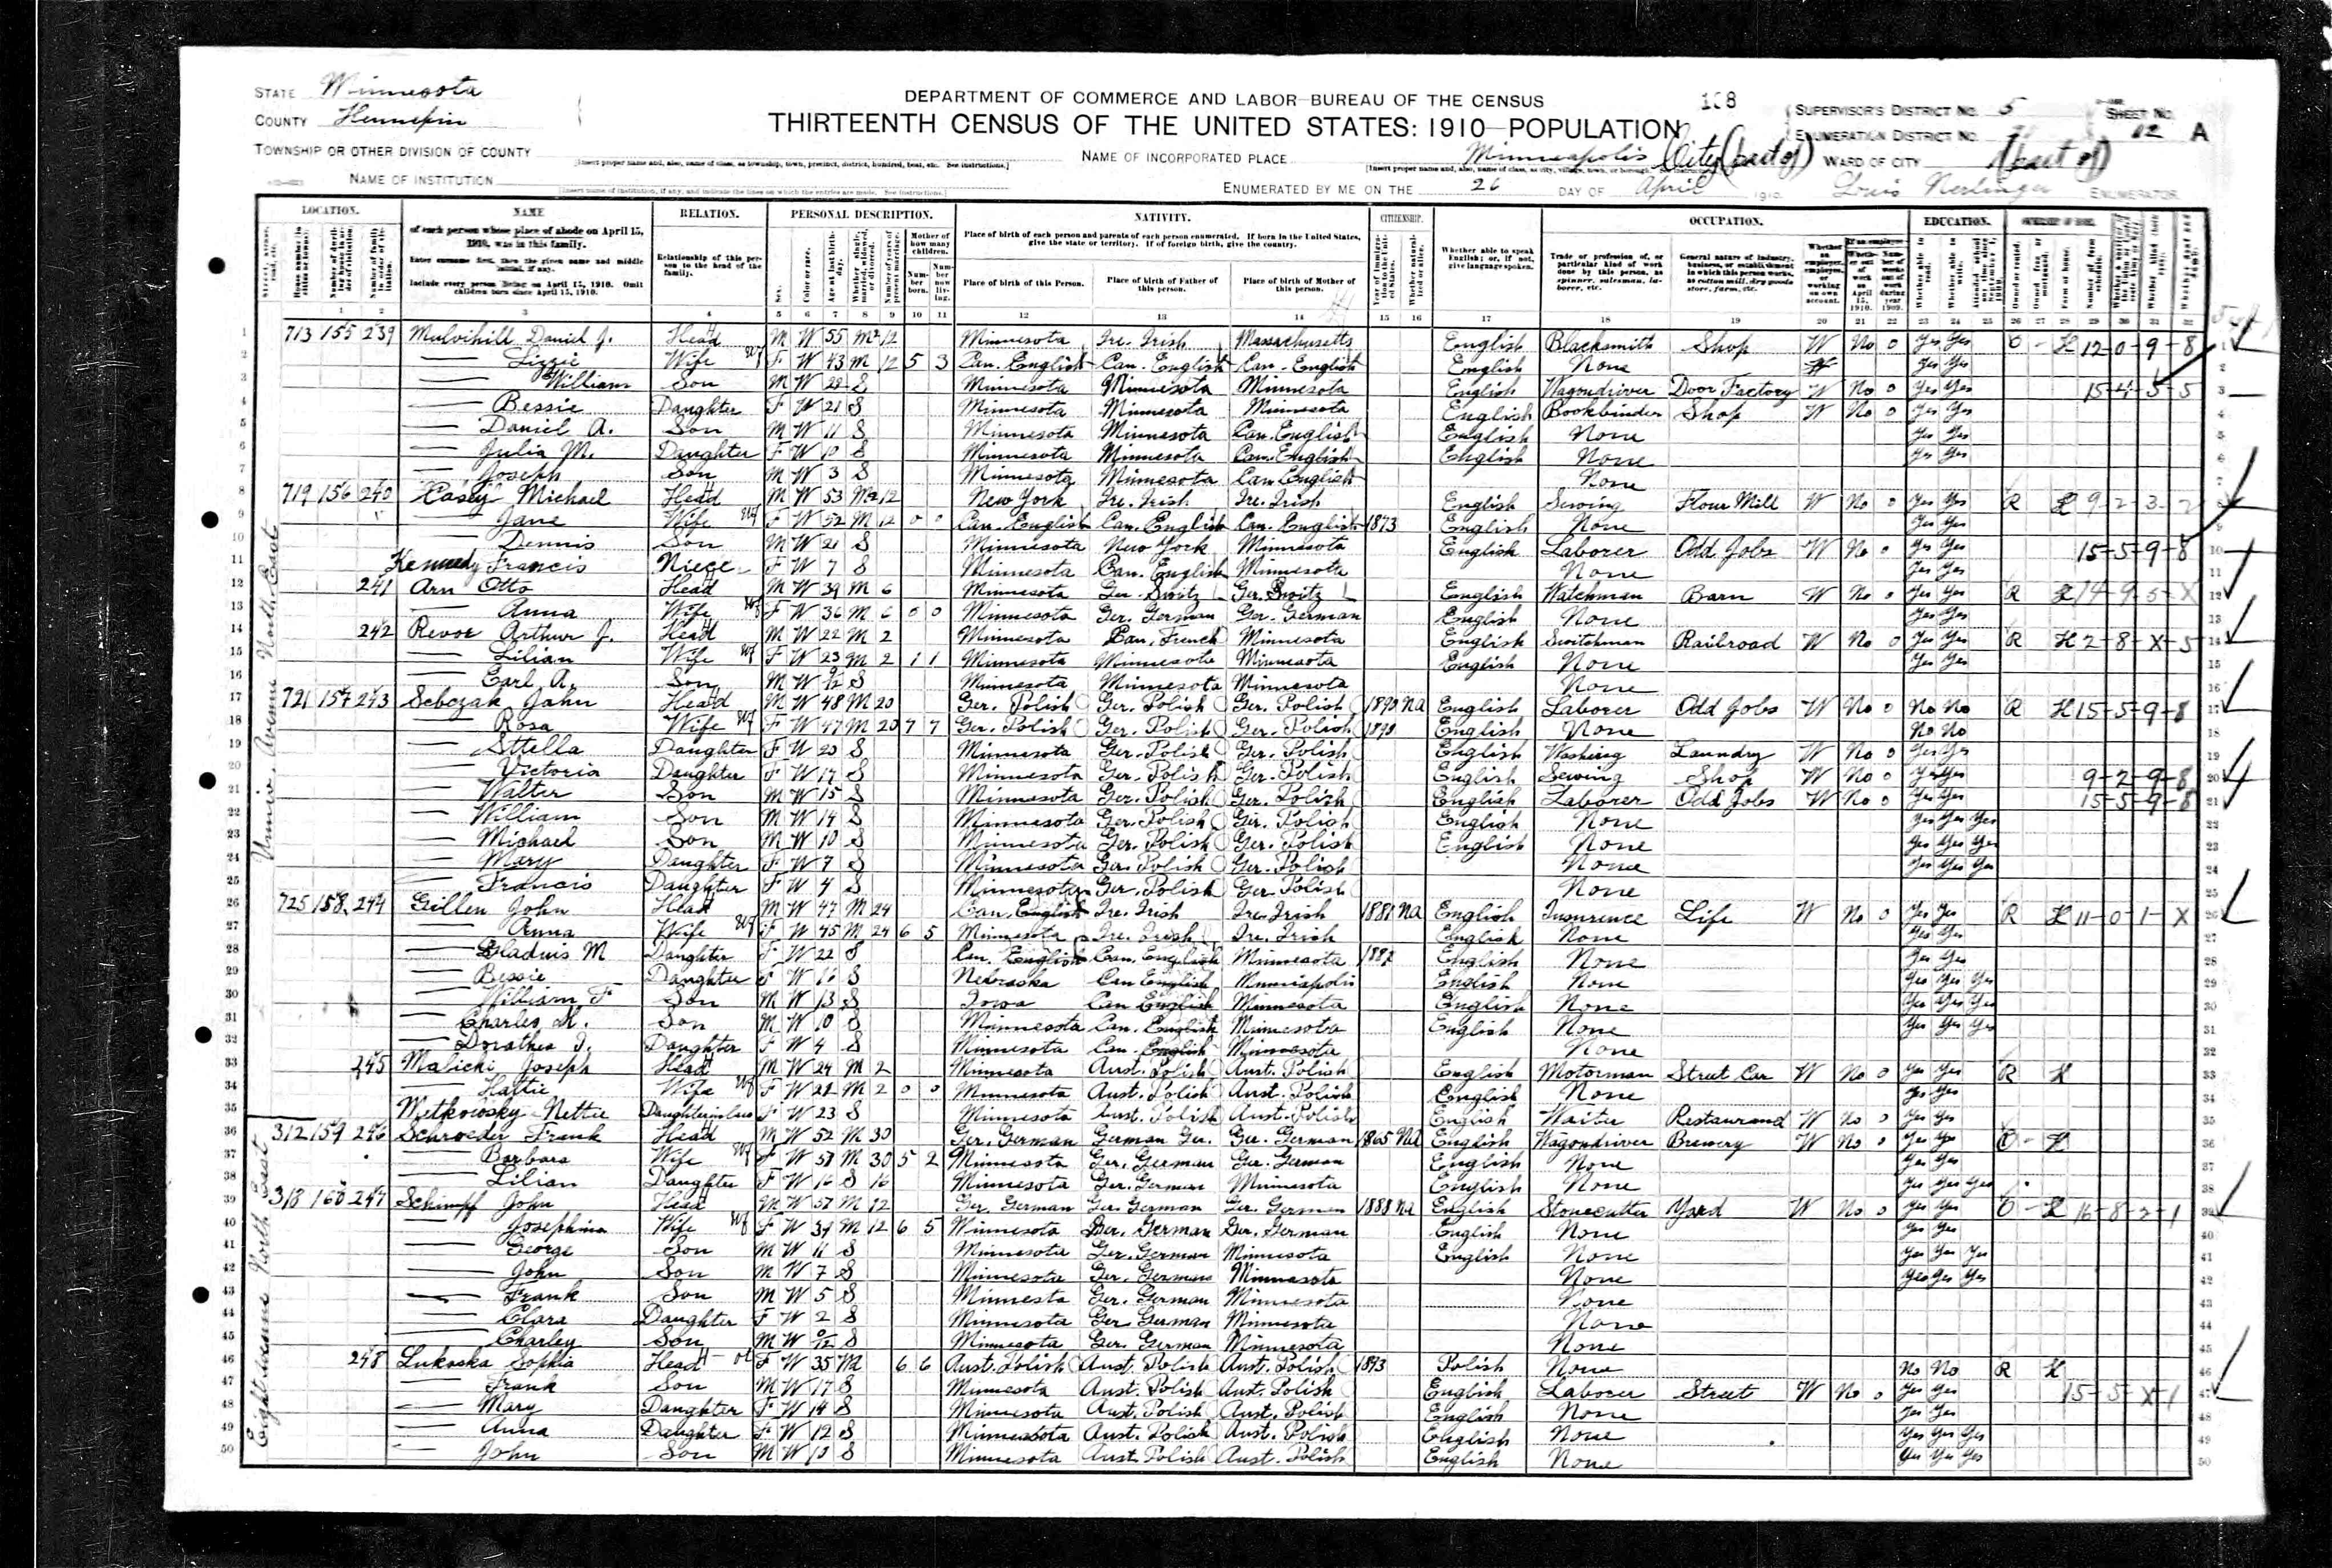 STATE Minnesota
COUNTY Hennepin
TOWNSHIP OR OTHER DIVISION OF COUNTY
NAME OF INSTITUTION
DEPARTMENT OF COMMERCE AND LABOR—BUREAU OF THE CENSUS
THIRTEENTH CENSUS OF THE UNITED STATES: 1910—POPULATION
NAME OF INCORPORATED PLACE Minneapolis City (part of)
ENUMERATED BY ME ON THE 26 DAY OF April 1910. Louis Nerlinger ENUMERATOR
SUPERVISOR'S DISTRICT NO. 5
ENUMERATION DISTRICT NO.
WARD OF CITY (part of)
SHEET NO. 12 A
LOCATION. NAME RELATION. PERSONAL DESCRIPTION. NATIVITY. CITIZENSHIP. OCCUPATION. EDUCATION.
of each person whose place of abode on April 15, 1910, was in this family.
Enter surname first, then the given name and middle initial, if any.
Include every person living on April 15, 1910. Omit children born since April 15, 1910.
Relationship of this person to the head of the family.
Place of birth of each person and parents of each person enumerated. If born in the United States, give the state or territory. If of foreign birth, give the country.
Place of birth of this Person. Place of birth of Father of this person. Place of birth of Mother of this person.
Whether able to speak English; or, if not, give language spoken.
Union Avenue North East
1 713 155 239 Mulvihill Daniel J. Head M W 55 M2 12 Minnesota Ire. Irish Massachusetts English Blacksmith Shop W No 0 Yes Yes O H 12-0-9-8
2 — Lizzie Wife F W 43 M 12 5 3 Can. English Can. English Can. English English None Yes Yes
3 — William Son M W 22 S Minnesota Minnesota Minnesota English Wagondriver Door Factory W No 0 Yes Yes 15-4-5-5
4 — Bessie Daughter F W 21 S Minnesota Minnesota Minnesota English Bookbinder Shop W No 0 Yes Yes
5 — Daniel A. Son M W 11 S Minnesota Minnesota Can. English English None Yes Yes
6 — Julia M. Daughter F W 10 S Minnesota Minnesota Can. English English None Yes Yes
7 — Joseph Son M W 3 S Minnesota Minnesota Can. English None
8 719 156 240 Casey Michael Head M W 53 M2 12 New York Ire. Irish Ire. Irish English Sewing Flour Mill W No 0 Yes Yes R H 9-2-3-2
9 — Jane Wife F W 52 M 12 0 0 Can. English Can. English Can. English 1873 English None Yes Yes
10 — Dennis Son M W 21 S Minnesota New York Minnesota English Laborer Odd Jobs W No 0 Yes Yes 15-5-9-8
11 Kennedy Francis Niece F W 7 S Minnesota Can. English Minnesota None Yes Yes
12 241 Arn Otto Head M W 39 M 6 Minnesota Ger. Switz Ger. Switz English Watchman Barn W No 0 Yes Yes R H 14-9-5-X
13 — Anna Wife F W 36 M 6 0 0 Minnesota Ger. German Ger. German English None Yes Yes
14 242 Revor Arthur J. Head M W 22 M 2 Minnesota Can. French Minnesota English Switchman Railroad W No 0 Yes Yes R H 2-8-X-5
15 — Lilian Wife F W 23 M 2 1 1 Minnesota Minnesota Minnesota English None Yes Yes
16 — Earl A. Son M W S Minnesota Minnesota Minnesota None
17 721 157 243 Sebczak John Head M W 48 M 20 Ger. Polish Ger. Polish Ger. Polish 1890 Na English Laborer Odd Jobs W No 0 No No R H 15-5-9-8
18 — Rosa Wife F W 47 M 20 7 7 Ger. Polish Ger. Polish Ger. Polish 1890 English None No No
19 — Sttella Daughter F W 20 S Minnesota Ger. Polish Ger. Polish English Washing Laundry W No 0 Yes Yes
20 — Victoria Daughter F W 17 S Minnesota Ger. Polish Ger. Polish English Sewing Shop W No 0 Yes Yes 9-2-9-8
21 — Walter Son M W 15 S Minnesota Ger. Polish Ger. Polish English Laborer Odd Jobs W No 0 Yes Yes 15-5-9-8
22 — William Son M W 14 S Minnesota Ger. Polish Ger. Polish English None Yes Yes Yes
23 — Michael Son M W 10 S Minnesota Ger. Polish Ger. Polish English None Yes Yes Yes
24 — Mary Daughter F W 7 S Minnesota Ger. Polish Ger. Polish None Yes Yes Yes
25 — Francis Daughter F W 4 S Minnesota Ger. Polish Ger. Polish None
26 725 158 244 Gillen John Head M W 47 M 24 Can. English Ire. Irish Ire. Irish 1881 Na English Insurence Life W No 0 Yes Yes R H 11-0-1-X
27 — Anna Wife F W 45 M 24 6 5 Minnesota Ire. Irish Ire. Irish English None Yes Yes
28 — Gladuis M Daughter F W 22 S Can. English Can. English Minnesota English None Yes Yes
29 — Bessie Daughter F W 16 S Nebraska Can English Minneapolis English None Yes Yes Yes
30 — William F Son M W 13 S Iowa Can English Minnesota English None Yes Yes Yes
31 — Charles M. Son M W 10 S Minnesota Can. English Minnesota English None Yes Yes Yes
32 — Dorathea J. Daughter F W 4 S Minnesota Can. English Minnesota None
33 245 Malicki Joseph Head M W 24 M 2 Minnesota Aust. Polish Aust. Polish English Motorman Street Car W No 0 Yes Yes R H
34 — Hattie Wife F W 21 M 2 0 0 Minnesota Aust. Polish Aust. Polish English None Yes Yes
35 Witkowsky Nettie Daughterinlaw F W 23 S Minnesota Aust. Polish Aust. Polish English Waiter Restaurand W No 0 Yes Yes
Eight Avenue North East
36 312 159 246 Schroeder Frank Head M W 52 M 30 Ger. German German Ger. Ger. German 1865 Na English Wagondriver Brewery W No 0 Yes Yes O H
37 — Barbara Wife F W 51 M 30 5 2 Minnesota Ger. German Ger. German English None Yes Yes
38 — Lilian Daughter F W 16 S 16 Minnesota Ger. German Minnesota English None Yes Yes Yes
39 318 160 247 Schimpf John Head M W 51 M 12 Ger. German Ger. German Ger. German 1888 Na English Stonecutter Yard W No 0 Yes Yes O H 16-8-2-1
40 — Josephina Wife F W 39 M 12 6 5 Minnesota Ger. German Ger. German English None Yes Yes
41 — George Son M W 11 S Minnesota Ger. German Minnesota English None Yes Yes Yes
42 — John Son M W 7 S Minnesota Ger. German Minnesota None Yes Yes Yes
43 — Frank Son M W 5 S Minnesta Ger. German Minnesota None
44 — Clara Daughter F W 2 S Minnesota Ger German Minnesota None
45 — Charley Son M W S Minnesota Ger. German Minnesota None
46 248 Lukaska Sophia Head F W 35 M 6 6 Aust. Polish Aust. Polish Aust. Polish 1893 Polish None No No R H
47 — Frank Son M W 17 S Minnesota Aust. Polish Aust. Polish English Laborer Street W No 0 Yes Yes 15-5-X-1
48 — Mary Daughter F W 14 S Minnesota Aust. Polish Aust. Polish English None Yes Yes
49 — Anna Daughter F W 12 S Minnesota Aust. Polish Aust. Polish English None Yes Yes Yes
50 — John Son M W 10 S Minnesota Aust. Polish Aust. Polish English None Yes Yes Yes